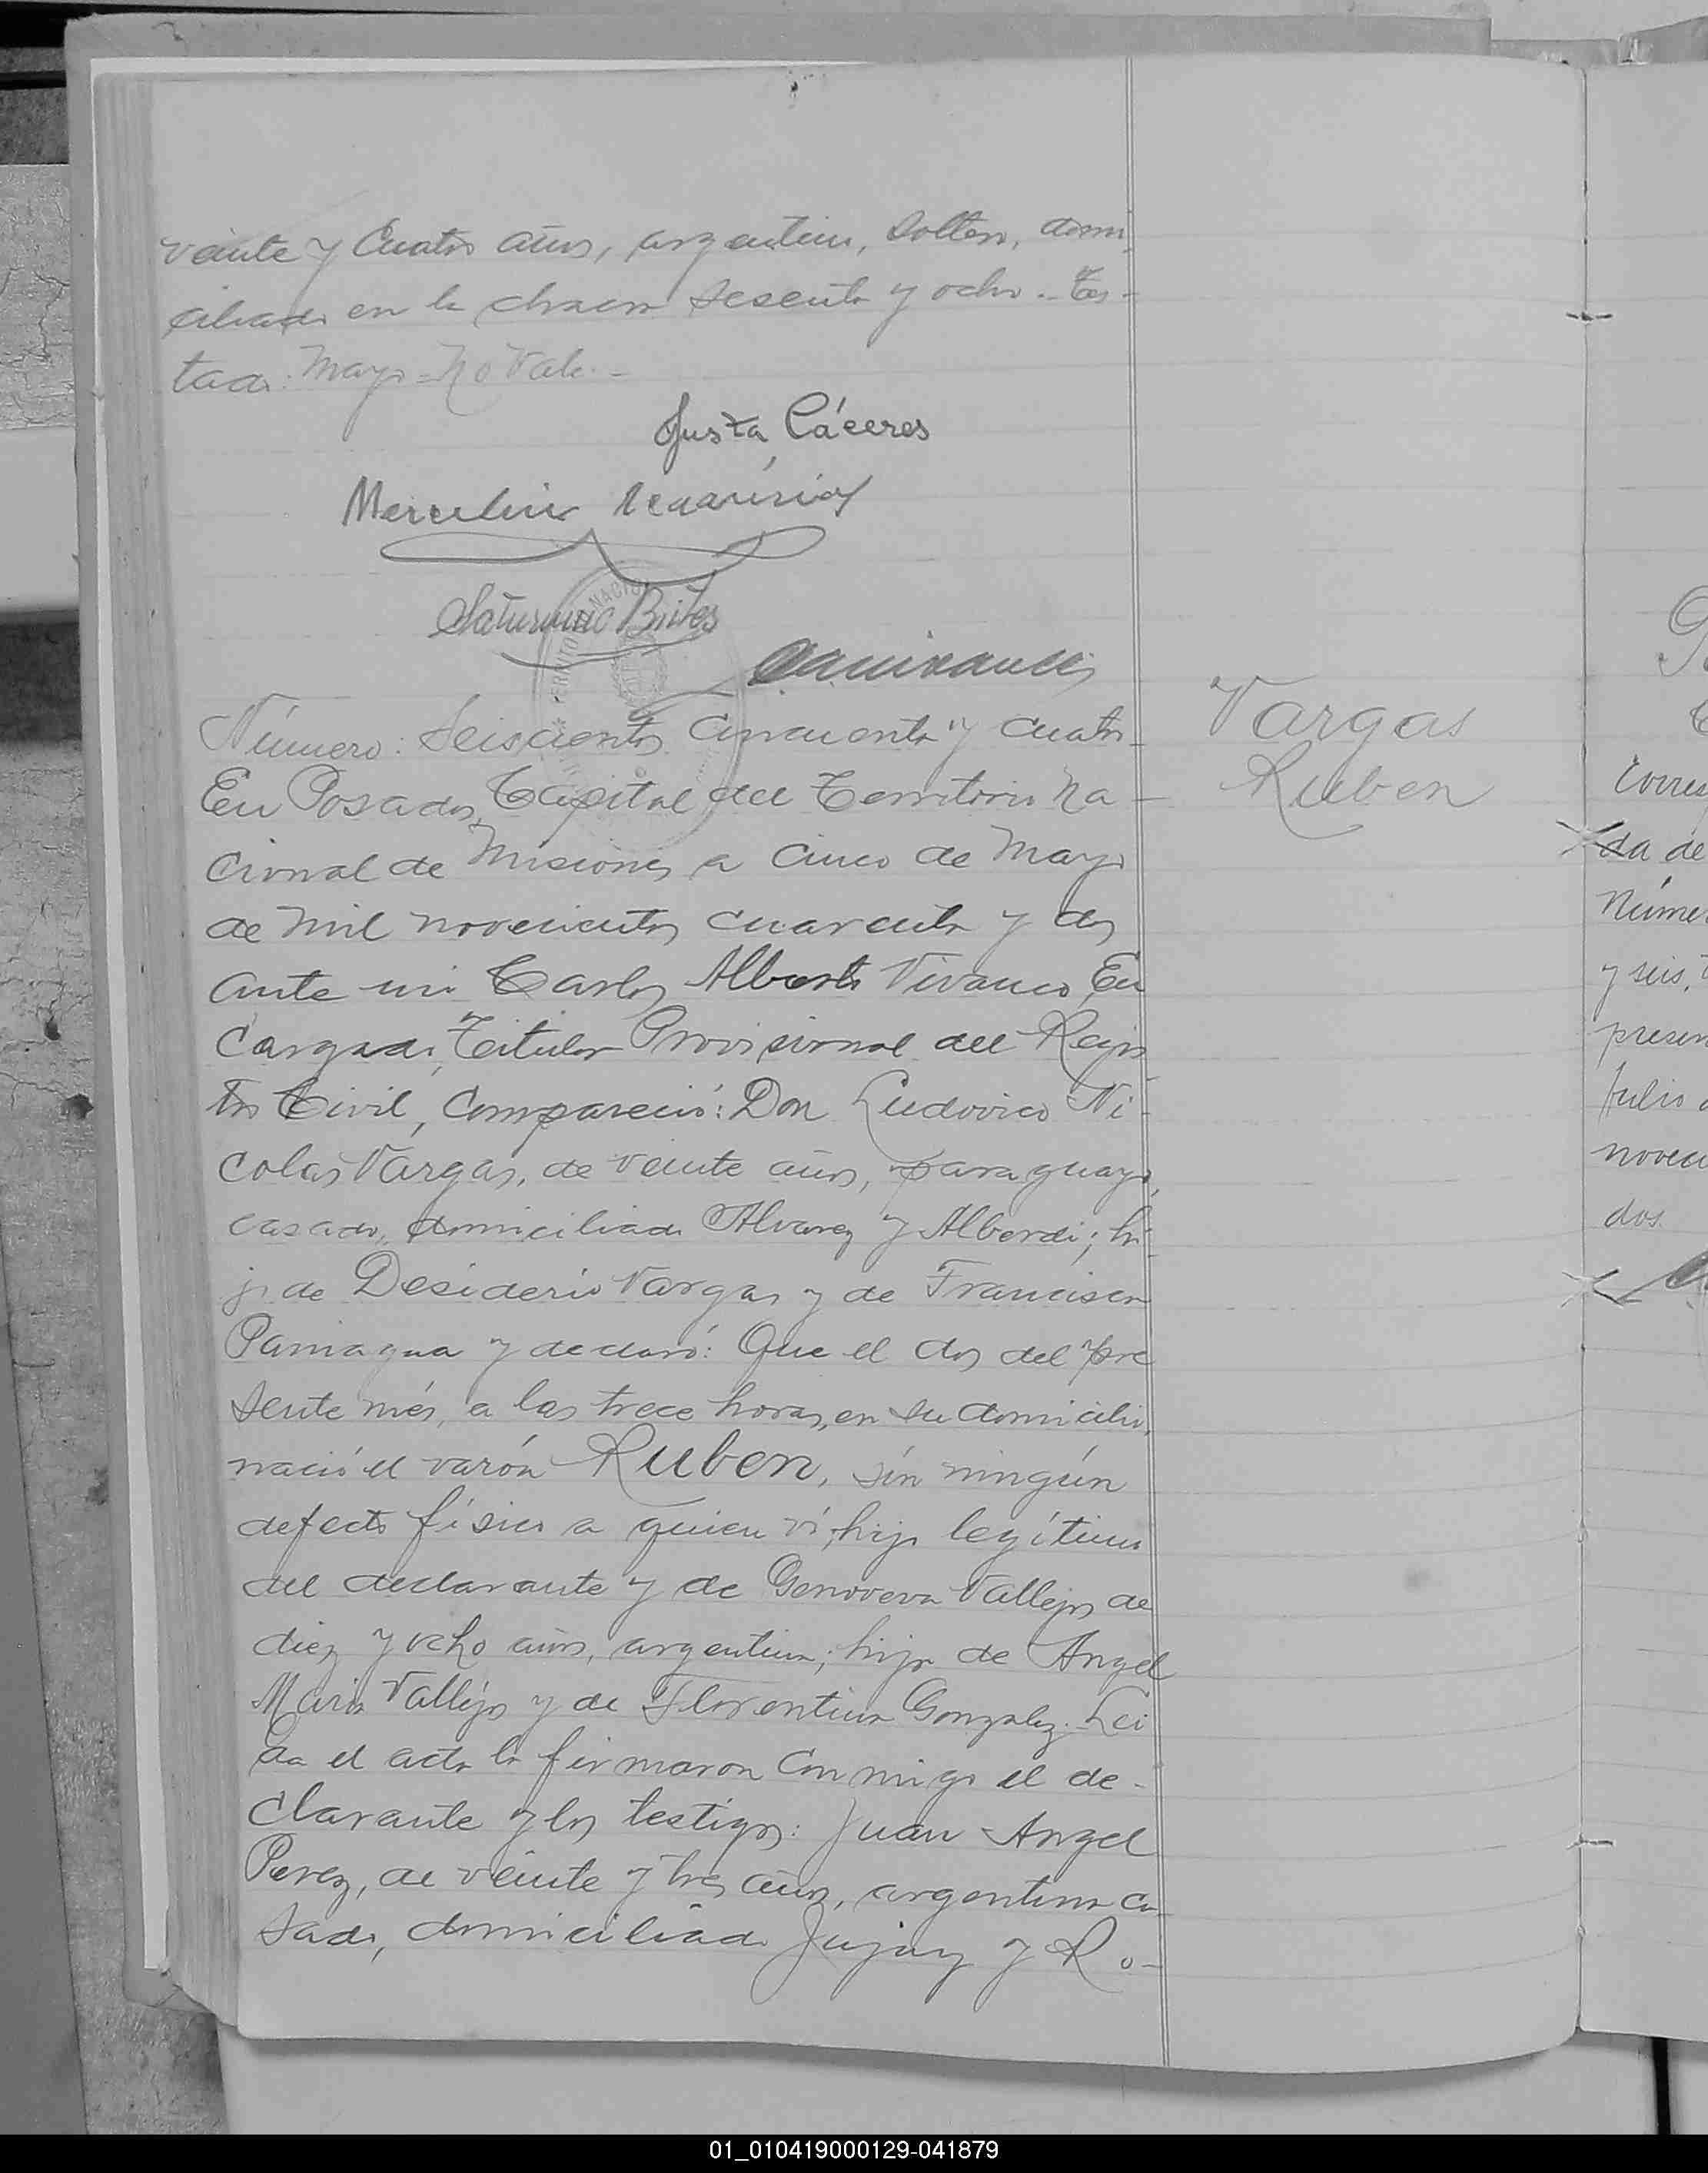 veinte y Cuatro años, argentino, soltero, domi
ciliado en la chacra sesenta y ocho.- Tes-
tado: Mayo = No Vale.-
Justa Cáceres
Saturnino Brites
Número: Seiscientos Cincuenta y cuatro-
En Posadas, Capital del Territorio Na-
cional de Misiones a cinco de Mayo
de mil novecientos cuarenta y dos
ante mi Carlos Alberto Vivanco, En
cargado Titular Provisional del Regis
tro Civil, Compareció: Don Ludovico Ni-
colas Vargas, de veinte años, paraguayo,
casado, domiciliado Alvarez y Alberdi; hi-
jo de Desiderio Vargas y de Francisca
Paniagua y declaró: Que el dos del pre
sente més, a las trece horas, en su domicilio,
nació el varón Ruben, sin ningún
defecto físico a quien ví, hijo legítimo
del declarante y de Genoveva Vallejos de
diez y ocho años, argentina; hija de Angel
Maria Vallejos y de Florentina Gonzalez. Lei
da el acta la firmaron conmigo el de-
clarante y los testigos: Juan Angel
Perez, de veinte y tres años, argentino ca-
sado, domiciliado Jujuy y Ro-
Vargas
Ruben
da de
Núme
y seis,
presen
Julio
dos.
01_010419000129-041879